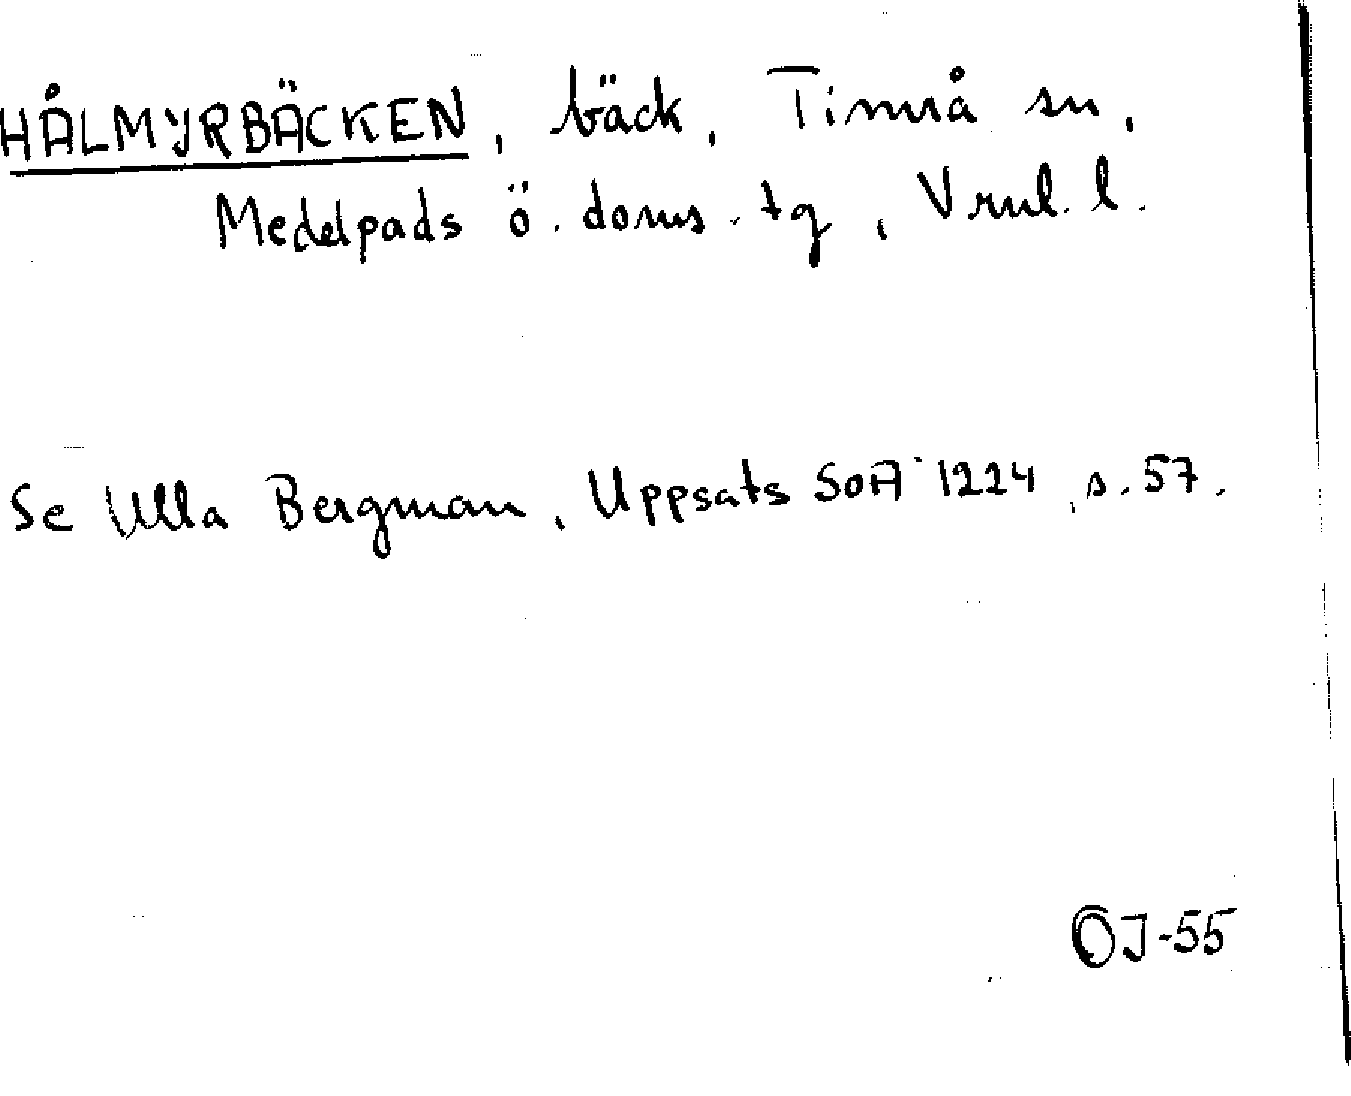 HÅLMYRBÄCKEN, bäck, Timrå sn,
Medelpads ö. doms. tg, Vrnl. l.
Se Ulla Bergman, Uppsats SOA 1224, s. 57.
OJ-55